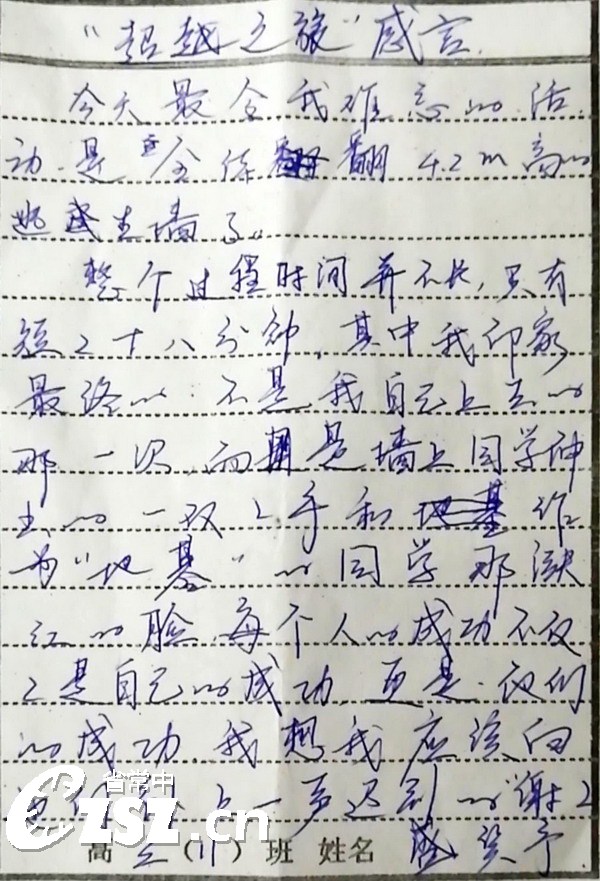 “超越之旅”感言.
今天最令我难忘的活
动是全体翻4.2m高的
逃生墙了。
整个过程时间并不长,只有
短短十八分钟,其中我印象
最深的不是我自己上去的
那一次,而是墙上同学伸
出的一双双手和地基作
为“地基”的同学那涨
红的脸,每个人的成功不仅
仅是自己的成功,更是我们
的成功,我想我应该向
他们上一声迟到的“谢谢
高二(11)班 姓名
省常中
CZSZ.cn